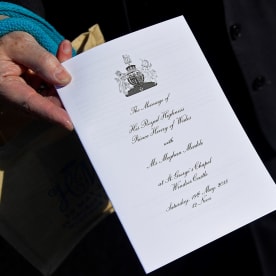 The Marriage of
His Royal Highness
Prince Henry of Wales
with
Ms. Meghan Markle
at St George's Chapel
Windsor Castle
Saturday, 19th May, 2018
12 Noon